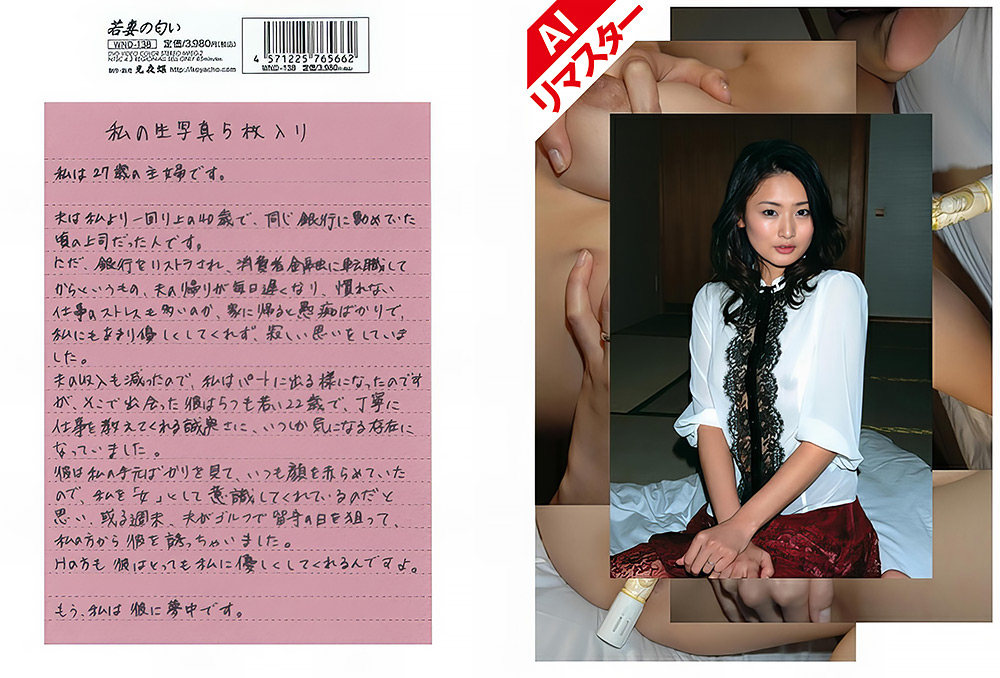 若妻の匂い
WND-138 定価/3,980円(税込)
DVD VIDEO COLOR STEREO MPEG-2
NTSC 4:3 REGION-ALL SELL ONLY 65minutes
http://koyacho.com
4 571225 765662
WND-138 定価/3,980円(税込)
私の生写真5枚入り
私は27歳の主婦です。
夫は私より一回り上の40歳で、同じ銀行に勤めていた
頃の上司だった人です。
ただ、銀行をリストラされ、消費者金融に転職して
からというもの、夫の帰りが毎日遅くなり、慣れない
仕事のストレスも多いのか、家に帰ると愚痴ばかりで、
私にもあまり優しくしてくれず、寂しい思いをしていま
した。
夫の収入も減ったので、私はパートに出る様になったのです
が、そこで出会った彼は5つも若い22歳で、丁寧に
仕事を教えてくれる誠実さに、いつしか気になる存在に
なっていました。
彼は私の手元ばかりを見て、いつも顔を赤らめていた
ので、私を「女」として意識してくれているのだと
思い、或る週末、夫がゴルフで留守の日を狙って、
私の方から彼を誘っちゃいました。
Hの方も彼はとっても私に優しくしてくれるんですよ。
もう、私は彼に夢中です。
AI
リマスター